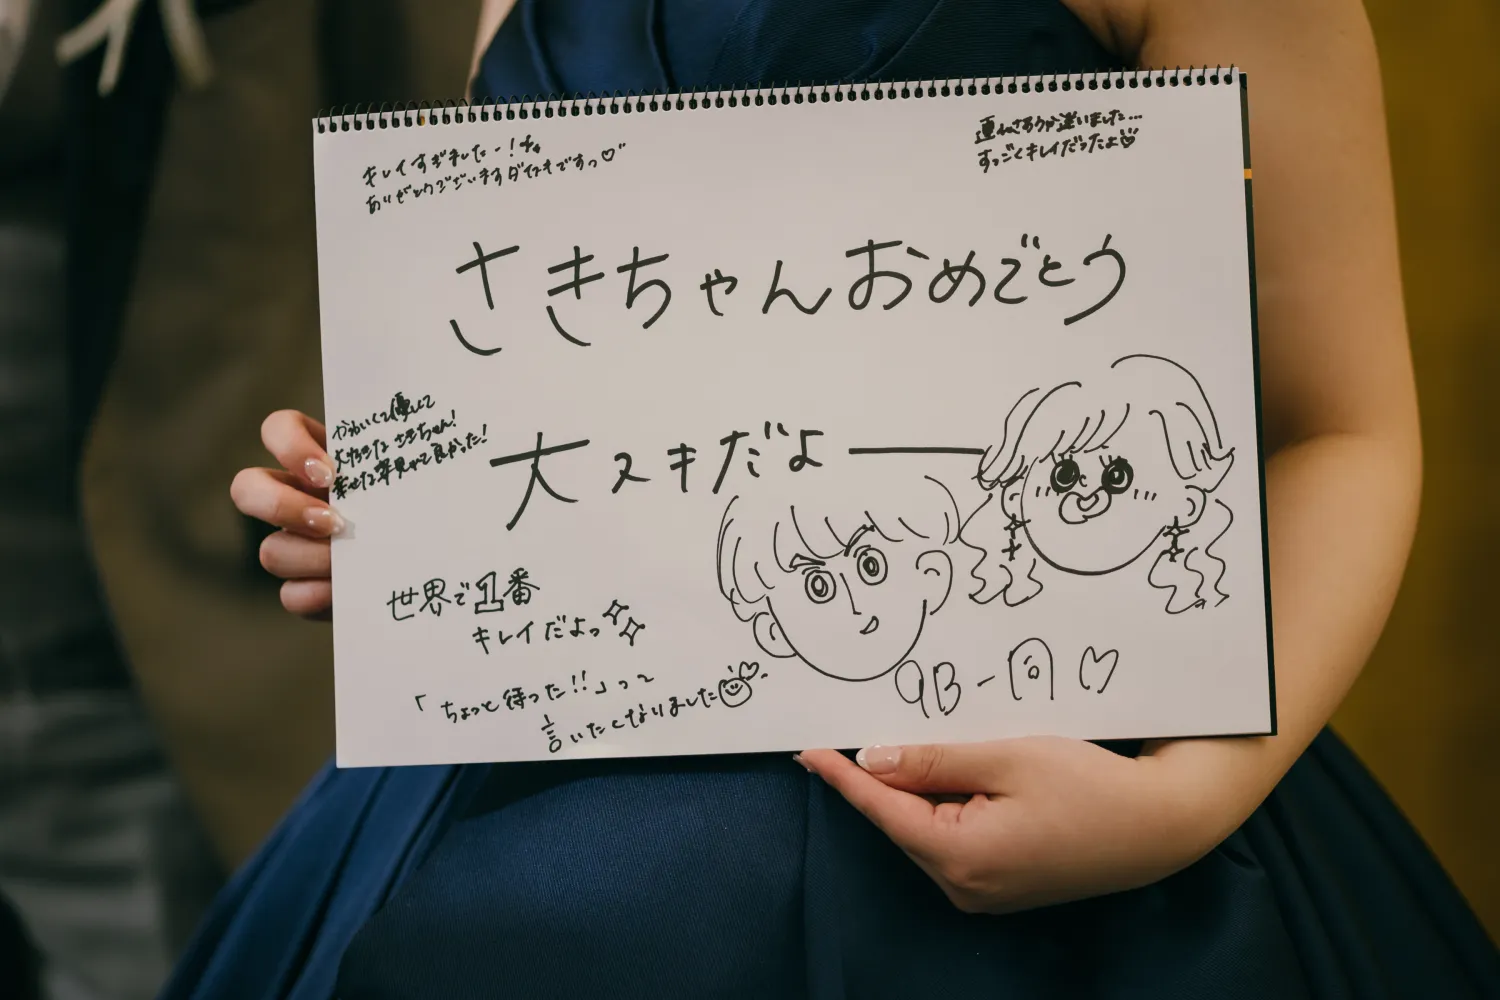 キレイすぎましたー!
ありがとうございますダイスキですっ♡
すっごくキレイだったよ
さきちゃんおめでとう
かわいくて優しくて
大好きなさきちゃん!
幸せな姿見れて良かった!
大スキだよー
世界で1番
キレイだよっ
「ちょっと待った!!」って
言いたくなりました
9B一同♡